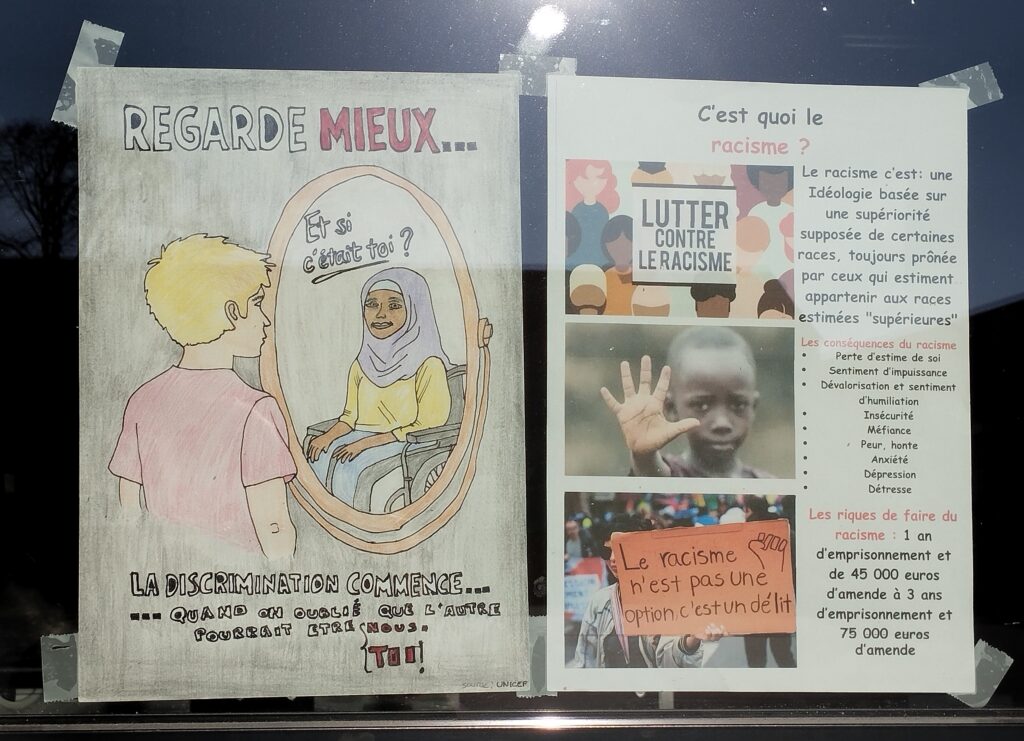 REGARDE MIEUX...
Et si
c'était toi ?
LA DISCRIMINATION COMMENCE...
... QUAND ON OUBLIÉ QUE L'AUTRE
POURRAIT ETRE NOUS.
TOI!
SOURCE: UNICEF
C'est quoi le
racisme ?
LUTTER
CONTRE
LE RACISME
Le racisme c'est: une
Idéologie basée sur
une supériorité
supposée de certaines
races, toujours prônée
par ceux qui estiment
appartenir aux races
estimées "supérieures"
Les conséquences du racisme
• Perte d'estime de soi
• Sentiment d'impuissance
• Dévalorisation et sentiment
d'humiliation
• Insécurité
• Méfiance
• Peur, honte
• Anxiété
• Dépression
• Détresse
Le racisme
n'est pas une
option, c'est un délit
Les riques de faire du
racisme : 1 an
d'emprisonnement et
de 45 000 euros
d'amende à 3 ans
d'emprisonnement et
75 000 euros
d'amende